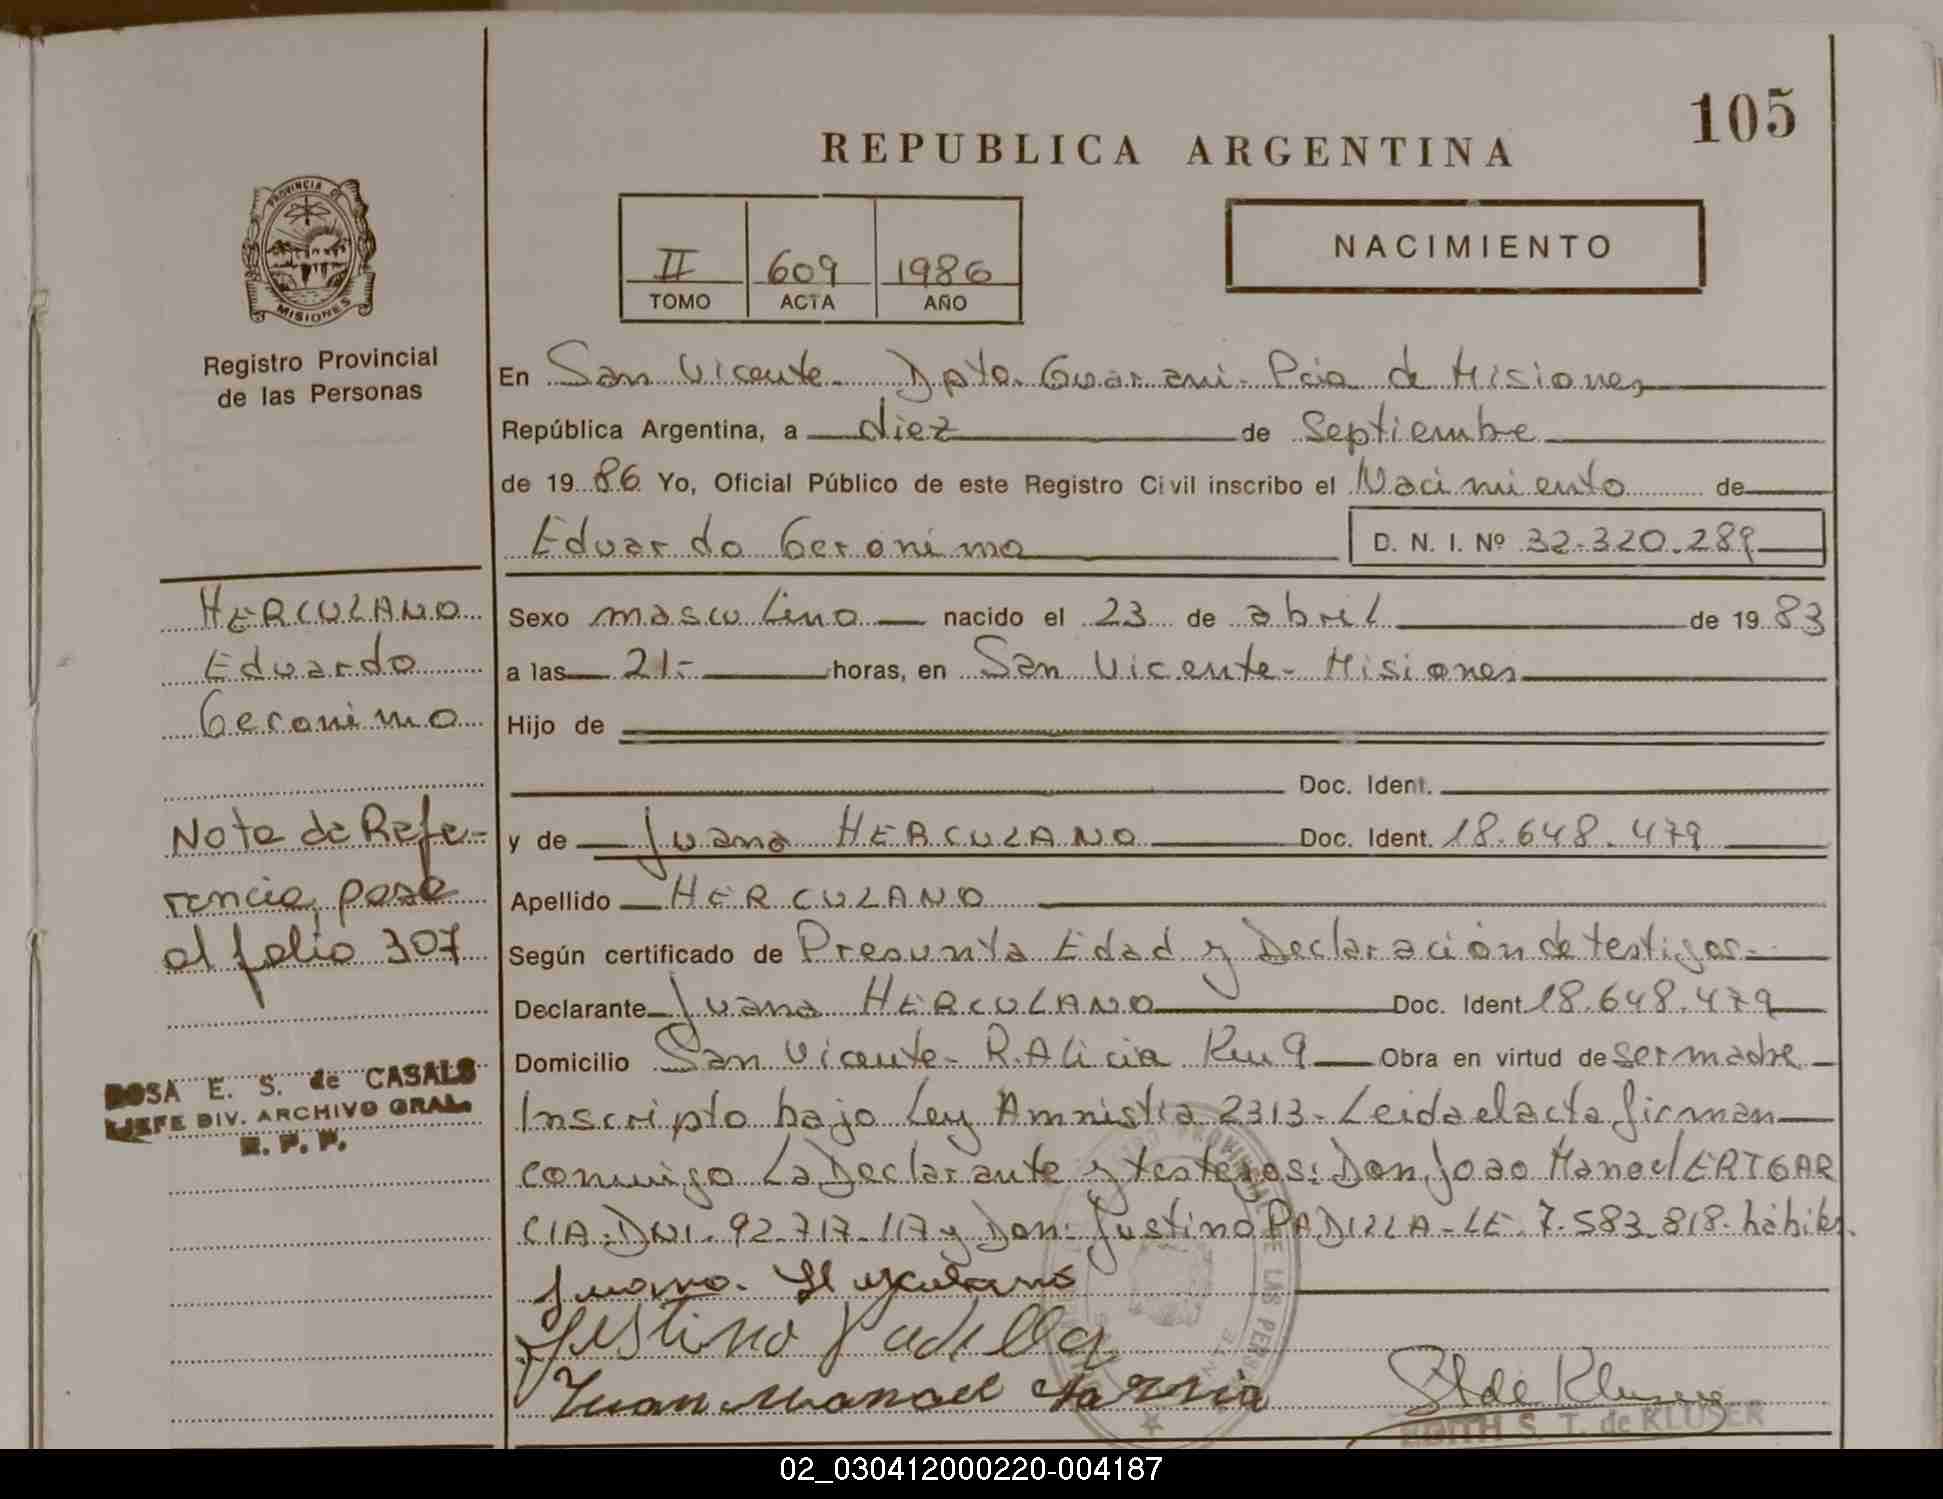 105
REPUBLICA ARGENTINA
PROVINCIA DE
MISIONES
Registro Provincial
de las Personas
II 609 1986
TOMO ACTA AÑO
NACIMIENTO
En San Vicente Dpto. Guarani - Pcia de Misiones
República Argentina, a diez de Septiembre
de 19 86 Yo, Oficial Público de este Registro Civil inscribo el Nacimiento de
Eduardo Geronimo D. N. I. Nº 32.320.289
HERCULANO
Eduardo
Geronimo
Sexo masculino nacido el 23 de abril de 19 83
a las 21.- horas, en San Vicente - Misiones
Hijo de
Doc. Ident.
y de Juana HERCULANO Doc. Ident. 18.648.479
Apellido HERCULANO
Según certificado de Presunta Edad y Declaración de testigos.-
Declarante Juana HERCULANO Doc. Ident 18.648.479
Domicilio San Vicente - R. Alicia Km 9 Obra en virtud de ser madre
Inscripto bajo Ley Amnistia 2313 - Leida el acta firman
conmigo La Declarante y testigos: Don Joao Manoel ERTGAR
CIA. DNI. 92.717.117 y Don: Justino PADILLA - LE. 7.583.818. hábiles.
Nota de Refe-
rencia, pasa
al folio 307
ROSA E. S. de CASALS
JEFE DIV. ARCHIVO GRAL.
R. P. P.
Juana. Herculano
Justino Padilla
Juan Manoel Garcia
EDITH S. T. de KLUSER
02_030412000220-004187